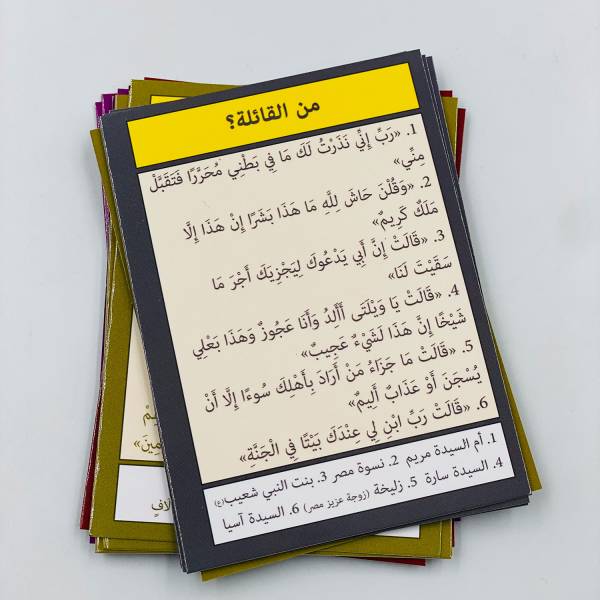 من القائلة؟
1. «رَبِّ إِنِّي نَذَرْتُ لَكَ مَا فِي بَطْنِي مُحَرَّرًا فَتَقَبَّلْ
مِنِّي»
2. «وَقُلْنَ حَاشَ لِلَّهِ مَا هَذَا بَشَرًا إِنْ هَذَا إِلَّا
مَلَكٌ كَرِيمٌ»
3. «قَالَتْ إِنَّ أَبِي يَدْعُوكَ لِيَجْزِيَكَ أَجْرَ مَا
سَقَيْتَ لَنَا»
4. «قَالَتْ يَا وَيْلَتَى أَأَلِدُ وَأَنَا عَجُوزٌ وَهَذَا بَعْلِي
شَيْخًا إِنَّ هَذَا لَشَيْءٌ عَجِيبٌ»
5. «قَالَتْ مَا جَزَاءُ مَنْ أَرَادَ بِأَهْلِكَ سُوءًا إِلَّا أَنْ
يُسْجَنَ أَوْ عَذَابٌ أَلِيمٌ»
6. «قَالَتْ رَبِّ ابْنِ لِي عِنْدَكَ بَيْتًا فِي الْجَنَّةِ»
1. أم السيدة مريم 2. نسوة مصر 3. بنت النبي شعيب(ع)
4. السيدة سارة 5. زليخة (زوجة عزيز مصر) 6. السيدة آسيا